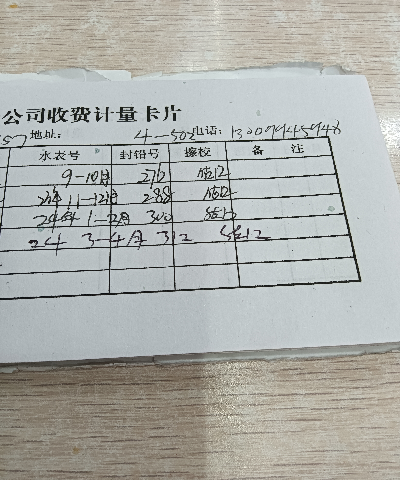 公司收费计量卡片
57 地址: 4-502 电话: 13009945948
水表号 封铅号 擦校 备 注
9-10月 270
11-12月 288 估12
24年1-2月 300 估12
24 3-4月 312 估12